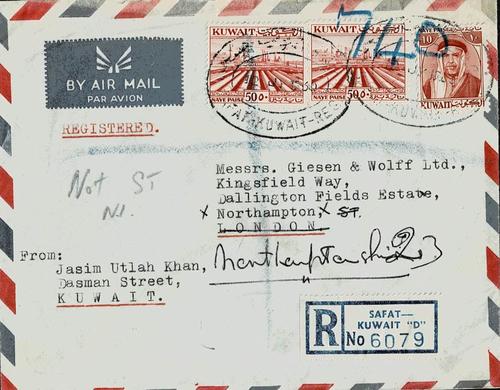 BY AIR MAIL
PAR AVION
KUWAIT
50 NAYE PAISE 50
KUWAIT
NAYE PAISE 50
740
NAYE PAISE
10
KUWAIT
REGISTERED.
Not ST
N1.
Messrs. Giesen & Wolff Ltd.,
Kingsfield Way,
Dallington Fields Estate,
x Northampton, x ST.
LONDON.
Northamptonshire
From:
Jasim Utlah Khan,
Dasman Street,
KUWAIT.
R
SAFAT—
KUWAIT "D"
No 6079